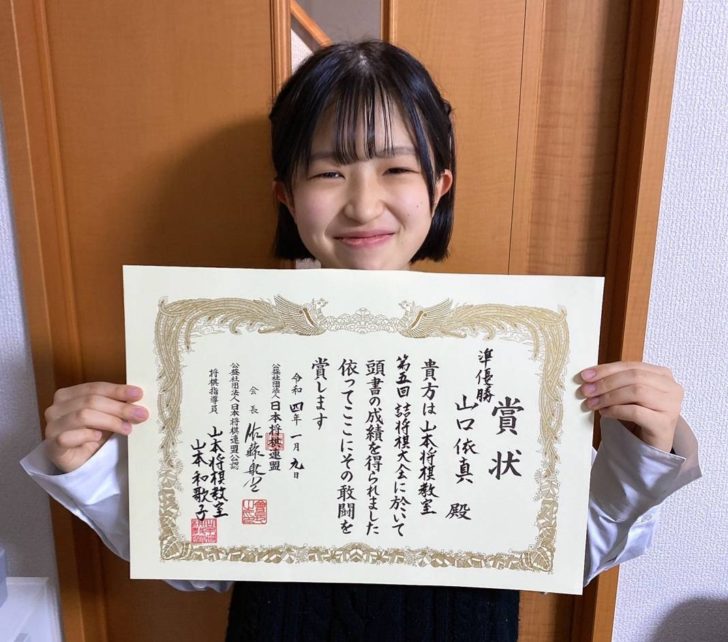 賞状
準優勝
山口依真 殿
貴方は山本将棋教室
第五回詰将棋大会に於いて
頭書の成績を得られました
依ってここにその敢闘を
賞します
令和四年一月九日
公益社団法人日本将棋連盟
会長
公益社団法人日本将棋連盟公認
将棋指導員
山本将棋教室
山本和歌子